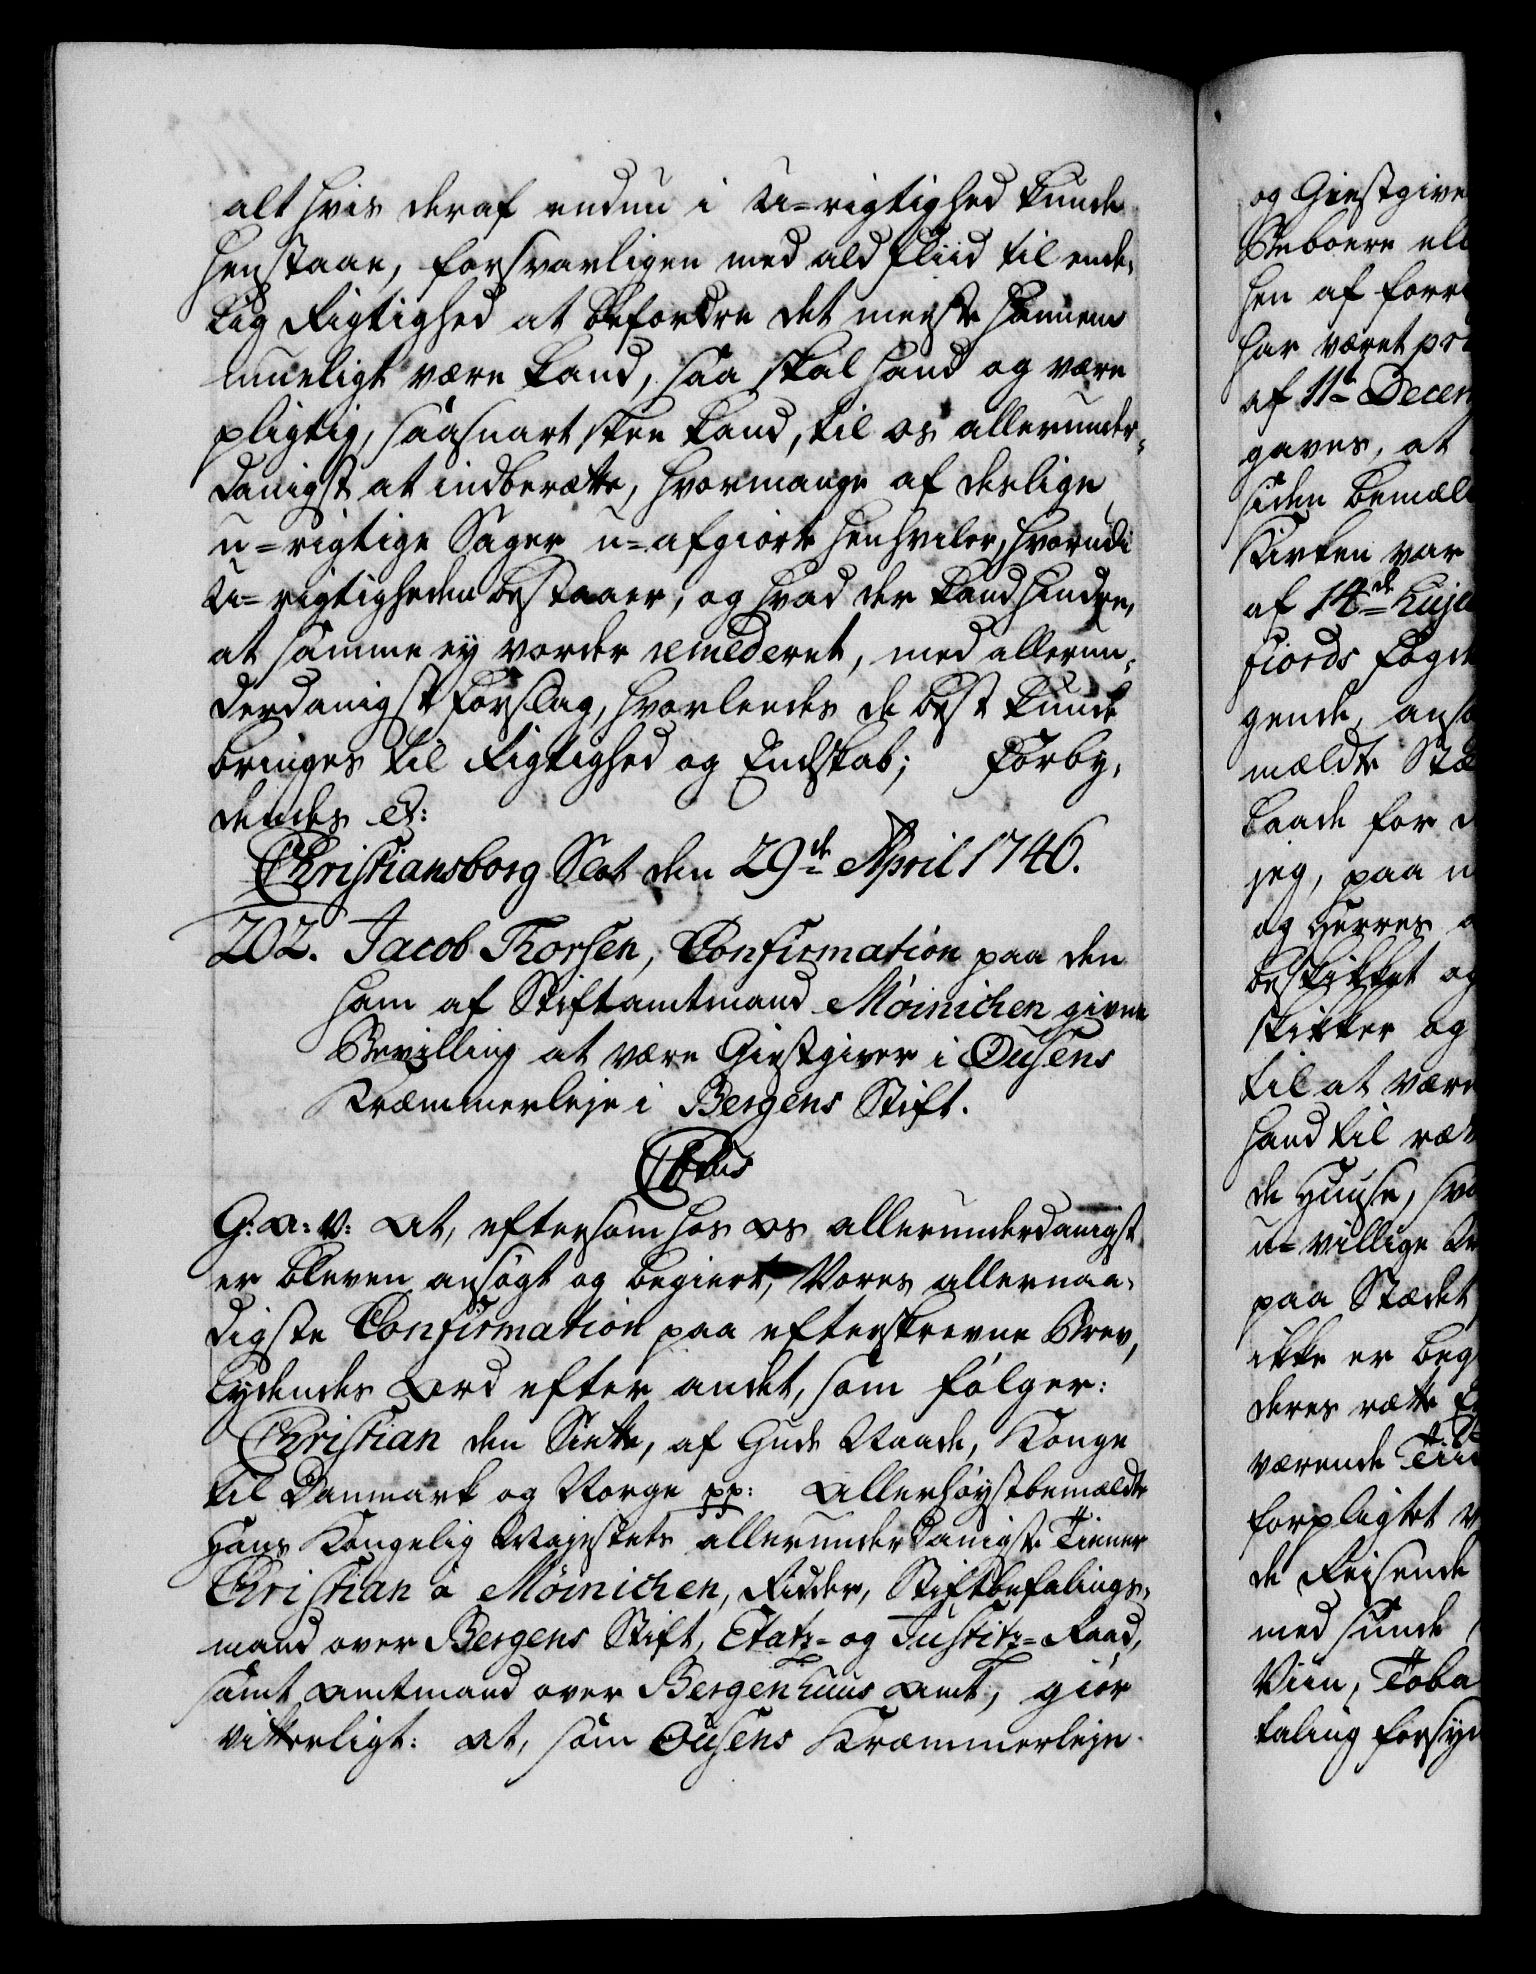 alt hvis deraf endnu i U=rigtighed kunde
henstaae, forsvarligen med ald fliid til ende,
lig Rigtighed at befordre det meeste hannem
mueligt være kand, saa skal hand og være
pligtig, saasnart skee kand, til os allerunder,
danigst at indberætte, hvormange af deslige
u=rigtige Sager u=afgiorte henhviler, hvorudi
U=rigtigheden bestaaer, og hvad der kand hindre,
at samme ey vorder remederet, med allerun,
derdanigst Forslag, hvorledes de best kunde
bringes til Rigtighed og Endskab; Forby,
dendes &:
Christiansborg Slot den 29de April 1746.
202. Jacob Thorsen, Confirmation paa den
ham af Stiftamtmand Møinichen givne
Bevilling at være Giestgiver i Ousens
Kræmmerleje i Bergens Stift.
C6tus
G: A: V: At, eftersom hos os allerunderdanigst
er bleven ansøgt og begiert, Vores allernaa,
digste Confirmation paa efterskrevne Brev,
lydendes Ord efter andet, som følger:
Christian den Siette, af Guds Naade, Konge
til Danmark og Norge pp: Allerhøystbemældte
Hans Kongelig Majestets allerunderdanigste Tiener
Christian à Møinichen, Ridder, Stiftbefalings,
mand over Bergens Stift, Etatz= og Justitz=Raad,
samt Amtmand over Bergenhuus Amt, giør
vitterligt: At, som Ousens Kræmmerleje
og Giestgive
Beboere ell
hen af forr
har været pr
af 11te Decem
gaves, at
siden bemæl
Kirken var
af 14de Huju
fiords Fogd
gende, ans
mældte Stæ
baade for d
jeg, paa
og Herres
beskikket og
skikker og
til at være
hand til ræt
de Huuse, sv
u=villige
paa Stædet
ikke er beg
deres rætte
værende Tiid
forpligtet
de Reisende
med sunde
Viin, Toba
taling forsyn